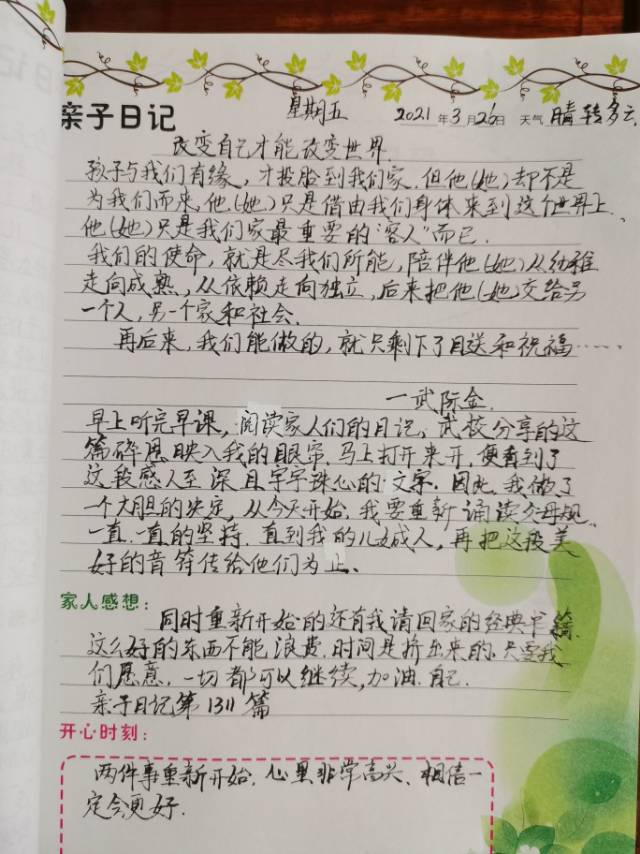 亲子日记 星期五 2021年3月26日 天气 晴转多云
改变自己才能改变世界
孩子与我们有缘，才投胎到我们家.但他(她)却不是
为我们而来,他(她)只是借由我们身体来到这个世界上、
他(她)只是我们家最重要的"客人"而已.
我们的使命，就是尽我们所能，陪伴他(她)从幼稚
走向成熟，从依赖走向独立，后来把他(她)交给另
一个人,另一个家和社会.
再后来,我们能做的,就只剩下了目送和祝福……
—武际金.
早上听完早课,阅读家人们的日记、武校分享的这
篇碎恩映入我的眼帘.马上打开来开,便看到了
这段感人至深且字字珠心的文字.因此.我做了
一个大胆的决定,从今天开始.我要重新诵读父母规.
一直.一直的坚持.直到我的儿女成人,再把这段美
好的音符传给他们为止、
家人感想:
同时重新开始的还有我请回家的经典书籍.
这么好的东西不能浪费.时间是挤出来的.只要我
们愿意.一切都可以继续,加油.自己.
亲子日记第1311篇
开心时刻:
两件事重新开始.心里非常高兴、相信一
定会更好.